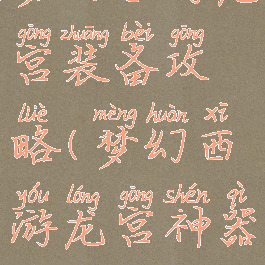 gōng zhuāng bèi gōng
宫装备攻
lüè mèng huàn xī
略(梦幻西
yóu lóng gōng shén qì
游龙宫神器